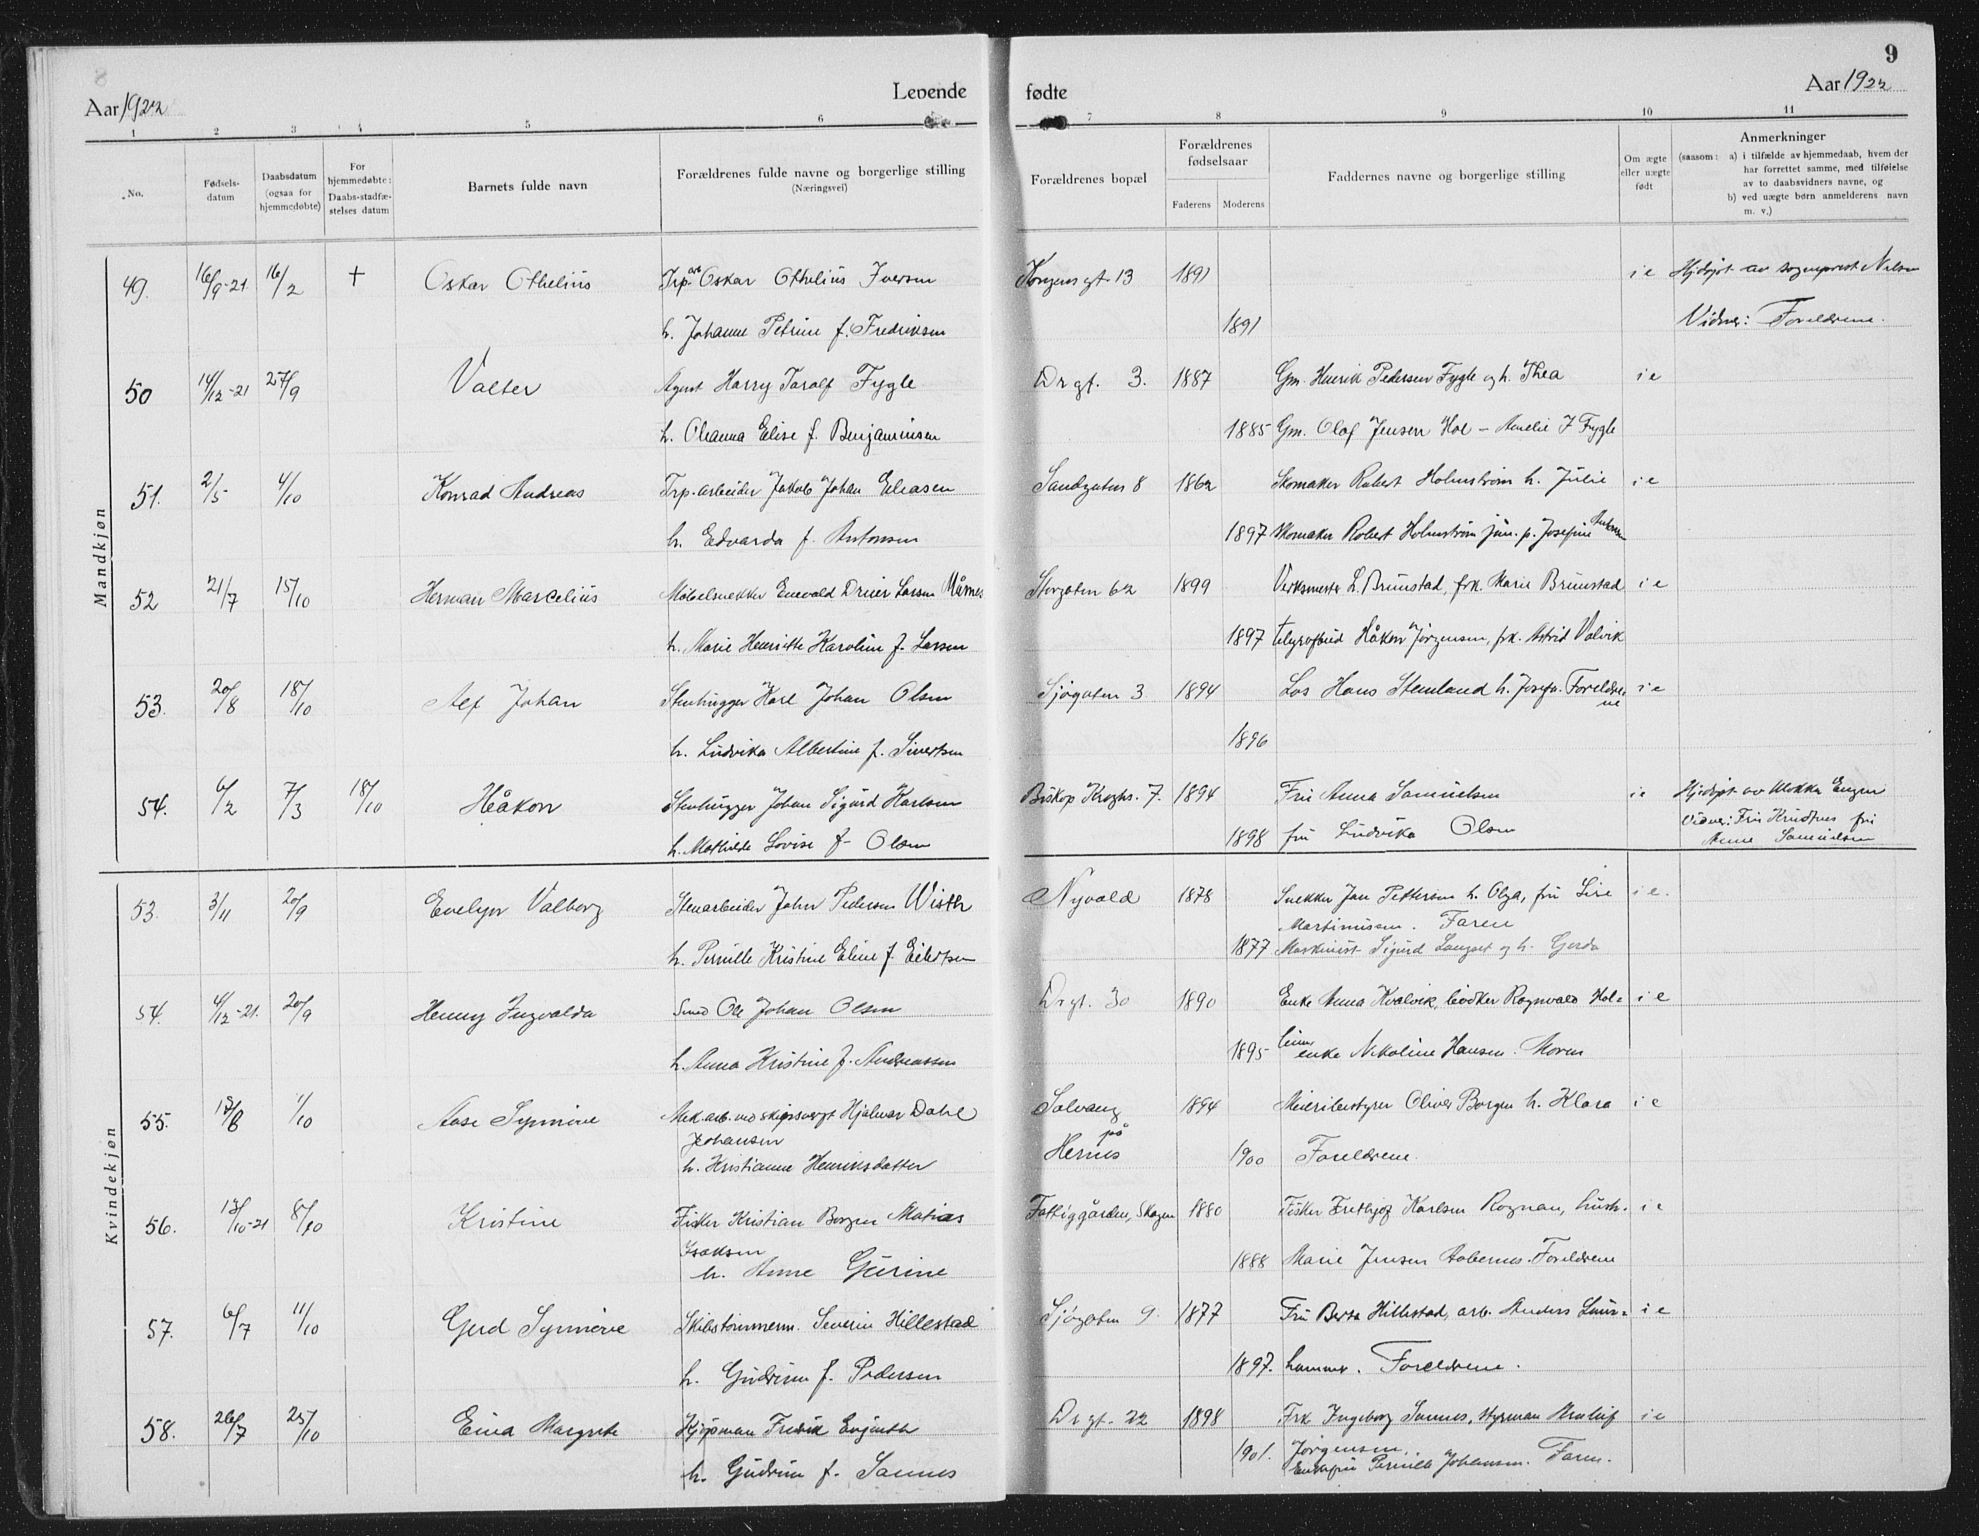 8
9
Aar 1922
Levende
fødte
Aar 1922
1 2 3 4 5 6 7 8 9 10 11
No.
Fødsels-
datum
Daabsdatum
(ogsaa for
hjemmedøbte)
For
hjemmedøbte:
Daabs-stadfæ-
stelses datum
Barnets fulde navn
Forældrenes fulde navne og borgerlige stilling
(Næringsvei)
Forældrenes bopæl
Forældrenes
fødselsaar
Faderens Moderens
Faddernes navne og borgerlige stilling
Om ægte
eller uægte
født
Anmerkninger
(saasom: a) i tilfælde av hjemmedaab, hvem der
har forrettet samme, med tilføielse
av to daabsvidners navne, og
b) ved uægte børn anmelderens navn
m. v.)
Mandkjøn
49. 16/9-21 16/2 + Oskar Othelius Trp.arb Oskar Othelius Iversen Kongens gt. 13 1891 i e Hjdøpt av sogneprest Nilsen
h. Johanne Petrine f. Fredriksen 1891 Vidner: Foreldrene.
50 14/12-21 27/9 Valter Agent Harry Toralf Fygle Dr gt. 3. 1887 Gm. Henrik Pedersen Fygle og h. Thea i e
h. Oleanna Elise f. Benjaminsen 1885 Gm. Olaf Jensen Hol - Amelie J Fygle
51. 2/5 4/10 Konrad Andreas Trp.arbeider Jakob Johan Eliasen Sandgaten 8 1862 Skomaker Robert Holmstrøm h. Julie i e
h. Edvarda f. Antonsen 1897 Skomaker Robert Holmstrøm jun. p. Josefine
52 21/7 15/10 Herman Marcelius Møbelsnekker Enevald Drier Larsen Mårnes Storgaten 62 1899 Verksmester L. Brunstad, frk. Marie Brunstad i e
h. Marie Henriette Karoline f. Larsen 1897 telegrafbud Håkon Jørgensen, frk. Astrid Valvik
53. 20/8 18/10 Alf Johan Stenhugger Karl Johan Olsen Sjøgaten 3 1894 Los Hans Stemland h. Josefa. Foreldre- i e
ne
h. Ludvika Albertine f. Sivertsen 1896
54. 6/2 7/3 18/10 Håkon Stenhugger Johan Sigurd Karlsen Biskop Kroghs. 7. 1894 Fru Anna Samuelsen i e Hjdøpt av klokker Engen
Vidner: Fru Knudtsen fru
h. Mathilde Lovise f. Olsen 1898 fru Ludvika Olsen Anna Samuelsen
Kvindekjøn
53. 3/11 20/9 Evelyn Valborg Stenarbeider John Pedersen Wisth Nyvold 1878 Snekker Jan Pettersen h. Olga, fru Lise i e.
Martinussen. Faren
h. Pernille Kristine Eline f. Eilertsen 1877 Maskinist Sigurd Langset og h. Gerda
54. 4/12-21. 20/9 Henny Ingvalda Smed Ole Johan Olsen Dr gt. 30 1890 Enke Anna Kvalvik, bødker Ragnvald Hol- i e
h. Anna Kristine f. Andreassen 1895 enke Nikoline Hansen. Moren
55. 1/10 Aase Synnøve Mek.arb. ved skipsvergt Hjalmar Dahl Solvang 1894 Meieribestyrer Oliver Borgen h. Klara i e
Johansen på
h. Kristianne Henriksdatter Hernes 1900 Foreldrene.
56. 13/10-21 8/10 Kristine Fisker Kristian Borgen Matias Fattiggården, Skagen 1880 Fisker Fritjof Karlsen Rognan, hush. i e
Isaksen
h. Anne Gurine 1888 Marie Jensen Aabernes. Foreldrene
57. 6/7 11/10 Gerd Synnøve Skibstømmerm. Severin Hillestad Sjøgaten 9. 1877 Fru Berta Hillestad, arb. Anders Laur- i e
h. Gudrun f. Pedersen 1897. Foreldrene.
58. 26/7 25/10 Eina Margrete Kjøpman Fredrik Enjenth Dr gt. 22 1898 Frk Ingeborg Sannes, styrman i e
Jørgensen.
h. Gudrun f. Sannes 1901. Enkefru Pernille Johansen. Faren.